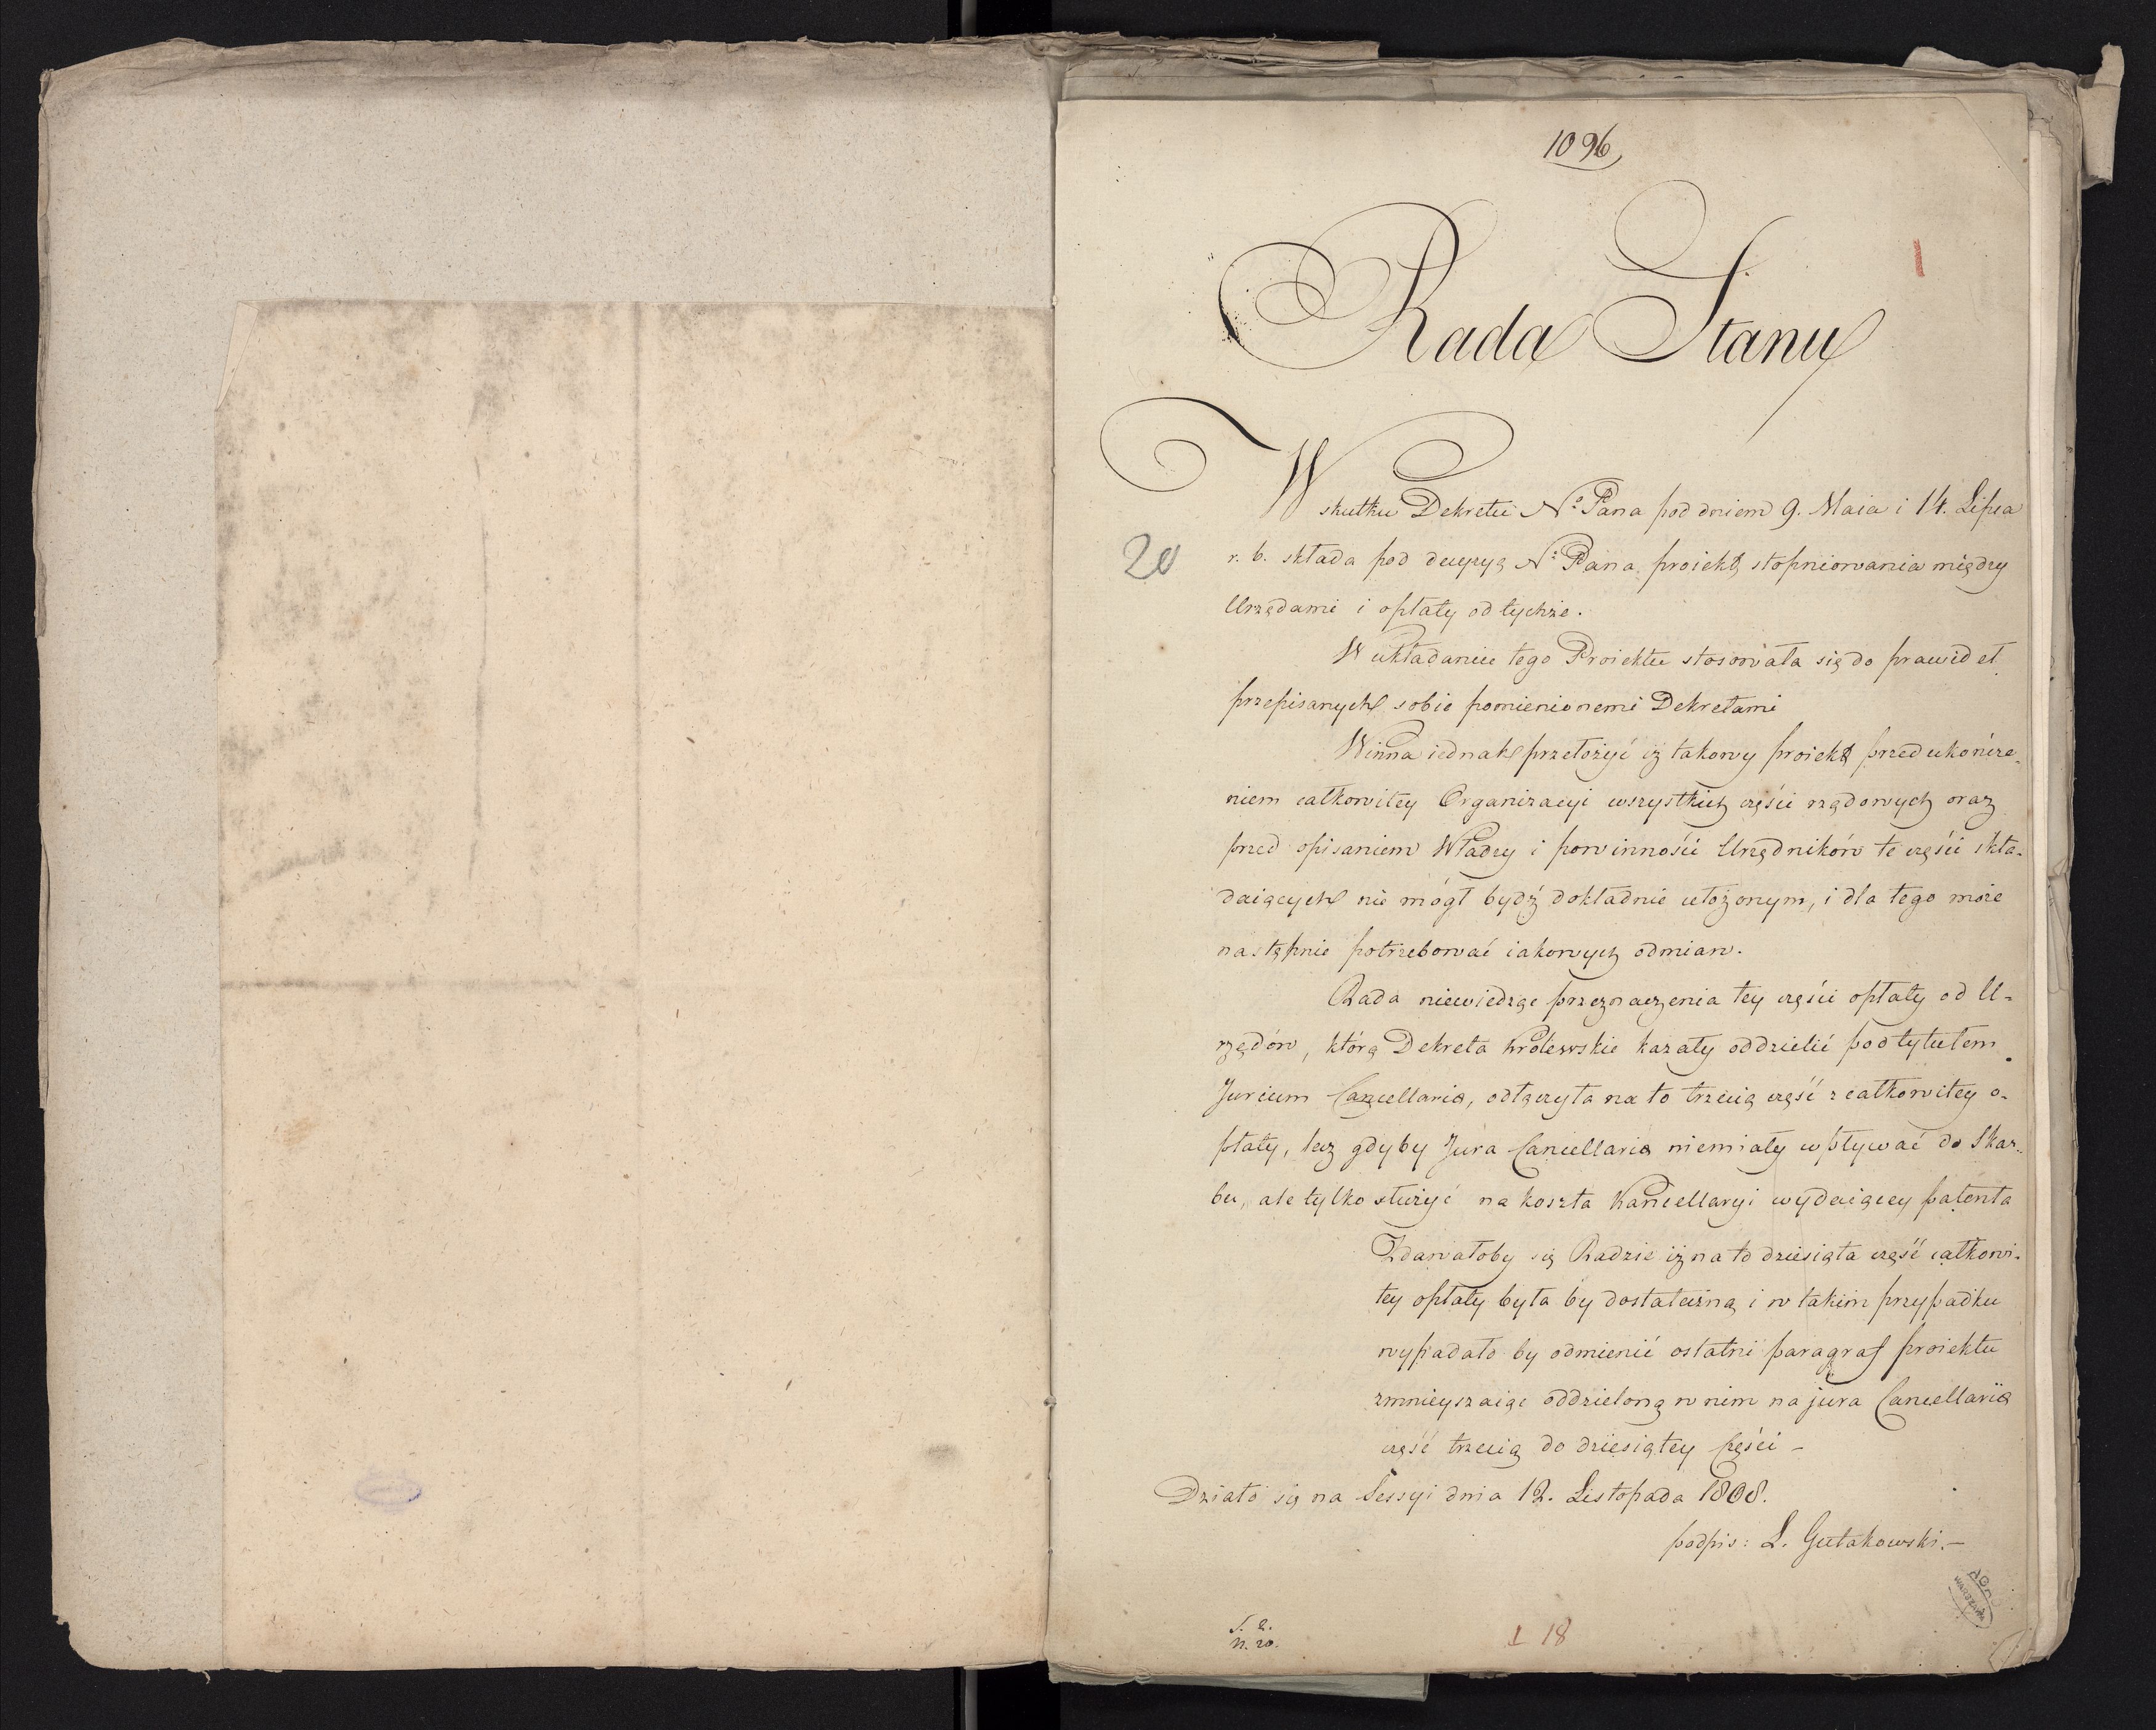 1096
1
Rada Stanu
W skutku Dekretu No Pana pod dniem 9. Maia i 14. Lipca
20
r. b. składa pod decyzyą N: Pana proiekt stopniowania między
Urzędami i opłaty od tychże.
W układaniu tego Proiektu stosowała się do prawideł
przepisanych sobie pomienionemi Dekretami
Winna iednak przełożyć iż takowy proiekt przed ukończe-
niem całkowitey Organizacyi wszystkich części rządowych oraz
przed opisaniem Władzy i powinności Urzędników te części skła-
daiących nie mógł bydź dokładnie ułożonym, i dla tego może
następnie potrzebować iakowych odmian.
Rada niewiedząc przeznaczenia tey części opłaty od U-
rzędów, którą Dekreta Królewskie kazały oddzielić pod tytułem
Jurium Cancellaria, odłączyła na to trzecią część z całkowitey o-
płaty, lecz gdyby Jura Cancellaria niemiały wpływać do Skar-
bu, ale tylko służyć na koszta Kancellaryi wydaiącey patenta
Zdawałoby się Radzie iż na to dziesiąta część całkowi-
tey opłaty była by dostateczną i w takim przypadku
wypadało by odmienić ostatni paragraf proiektu
zmnieyszaiąc oddzieloną w nim na jura Cancellaria
część trzecią do dziesiątey Części -
Działo się na Sessyi dnia 12. Listopada 1808.
podpis: L. Gutakowski. -
AGAD
WARSZAWA
S. 2.
N. 20.
1 18